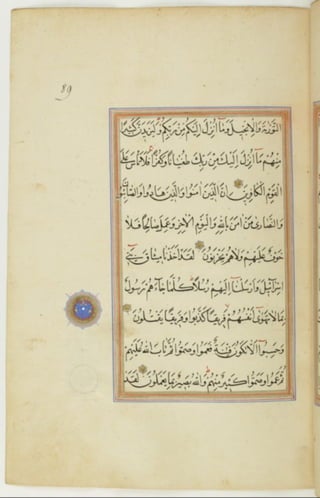 89
التورىة والانجيل وما انزل اليكم من ربكم وليزيدن كثيرا
منهم ما انزل اليك من ربك طغيانا وكفرا فلا تاس على
القوم الكافرين ان الذين امنوا والذين هادوا والصابئون
والنصارى من امن بالله واليوم الاخر وعمل صالحا فلا
خوف عليهم ولا هم يحزنون لقد اخذنا ميثاق بني
اسرائيل وارسلنا اليهم رسلا كلما جاءهم رسول
بما لا تهوى انفسهم فريقا كذبوا وفريقا يقتلون
وحسبوا الا تكون فتنة فعموا وصموا ثم تاب الله عليهم
ثم عموا وصموا كثير منهم والله بصير بما يعملون لقد